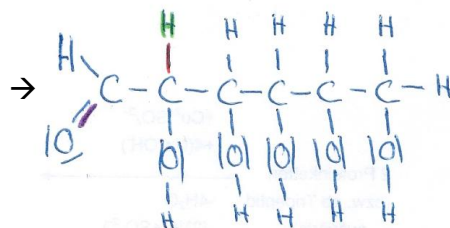 H H H H H
H
→ C – C – C – C – C – C – H
|O |O| |O| |O| |O| |O|
H H H H H